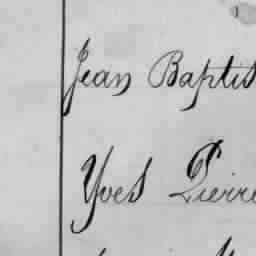 Jean Baptis
Yves Pierre